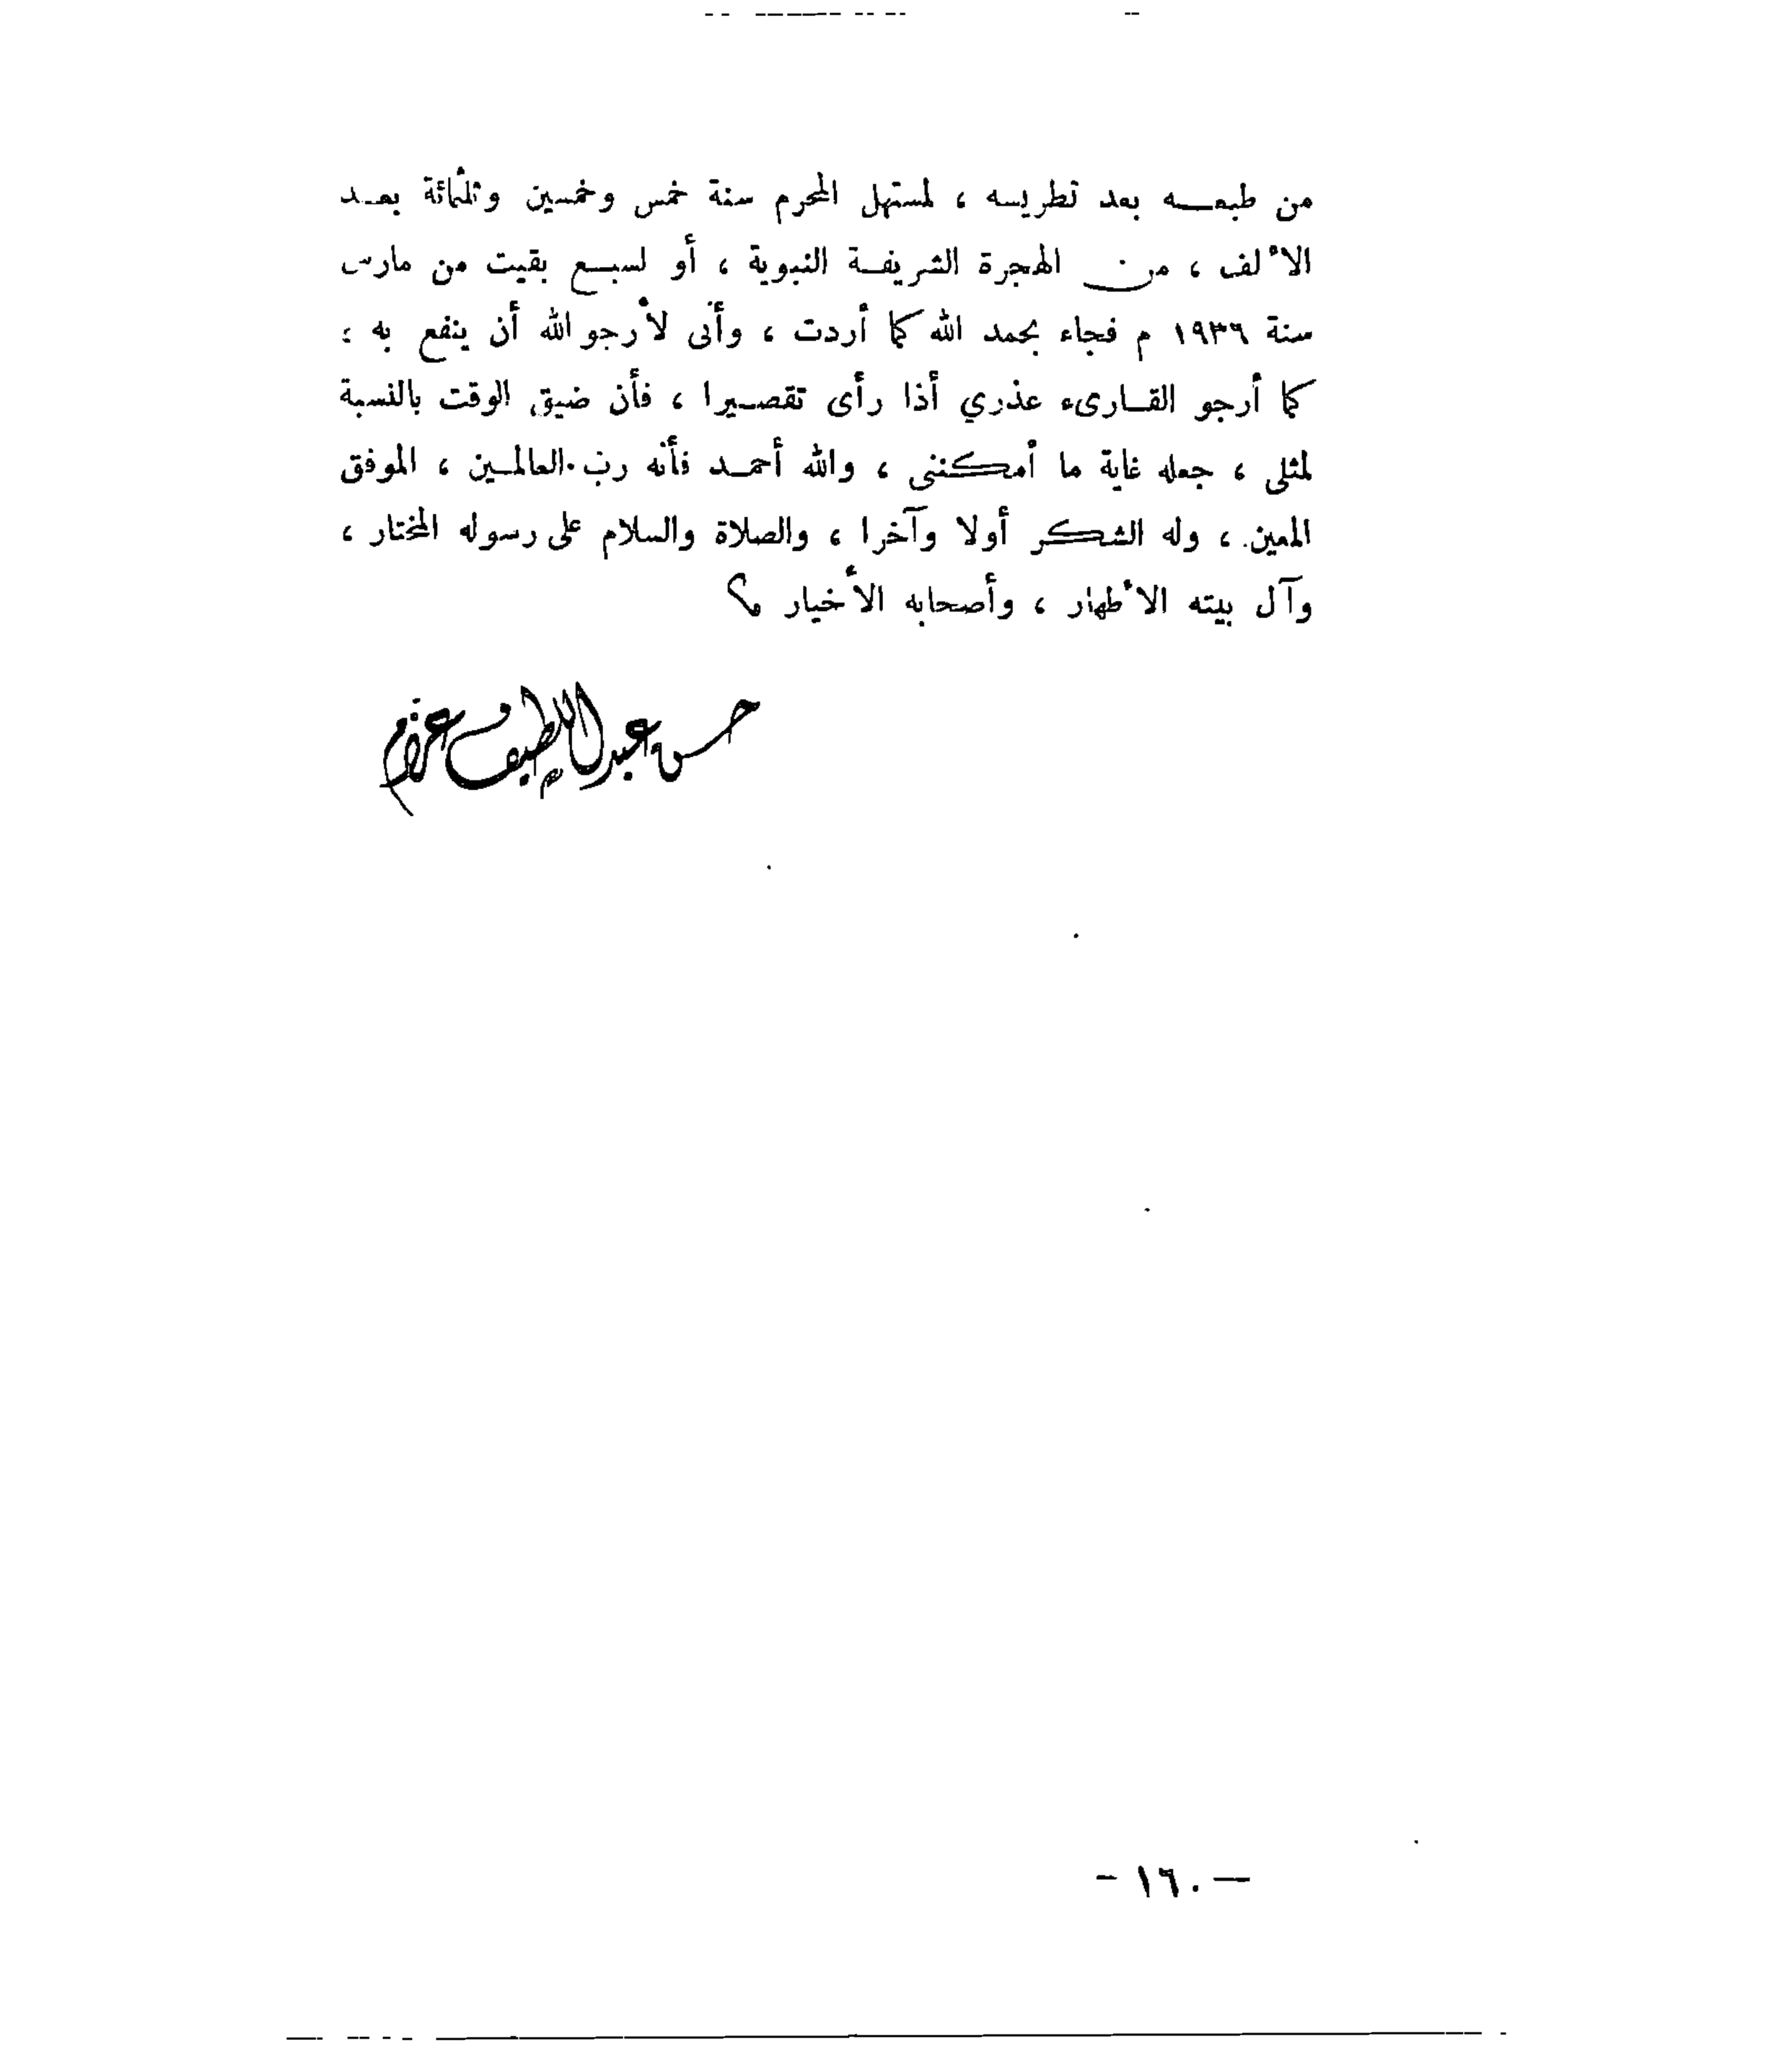 من طبعه بعد تطريسه ، لمستهل المحرم سنة خمس وخمسين وثلثمائة بعد
الأ لف ، من الهجرة الشريفة النبوية ، أو لسبع بقيت من مارس
سنة ١٩٣٦ م فجاء بحمد الله كما أردت ، وأنى لأرجو الله أن ينفع به ؛
كما أرجو القارىء عذري أذا رأى تقصيرا ، فأن ضيق الوقت بالنسبة
لمثلى ، جعله غاية ما أمكننى ، والله أحمد فأنه رب العالمين ، الموفق
المعين ، وله الشكر أولا وآخرا ، والصلاة والسلام على رسوله المختار ،
وآل بيته الأطهار ، وأصحابه الأخيار
حسن عبد اللطيف عزام
— ١٦٠ -